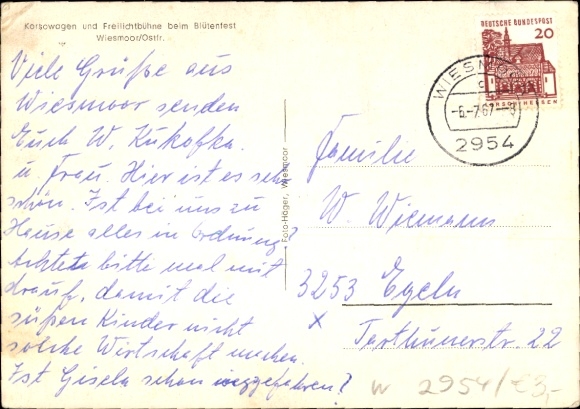 Korsowagen und Freilichtbühne beim Blütenfest
Wiesmoor/Ostfr.
DEUTSCHE BUNDESPOST
20
LORSCH/HESSEN
WIESMOOR
c
-6.-7.67--8
2954
Viele Grüße aus
Wiesmoor senden
Euch W. Kukofka.
u. Frau. Hier ist es sehr
schön. Ist bei uns zu
Hause alles in Ordnung?
Achtet bitte mal mit
drauf, damit die
süßen Kinder nicht
solche Wirtschaft machen.
Ist Gisela schon gefahren?
Foto-Höger, Wiesmoor
Familie
W. Wiemann
3253 Egeln
x
Tarthunerstr. 22
W 2954/€3,-